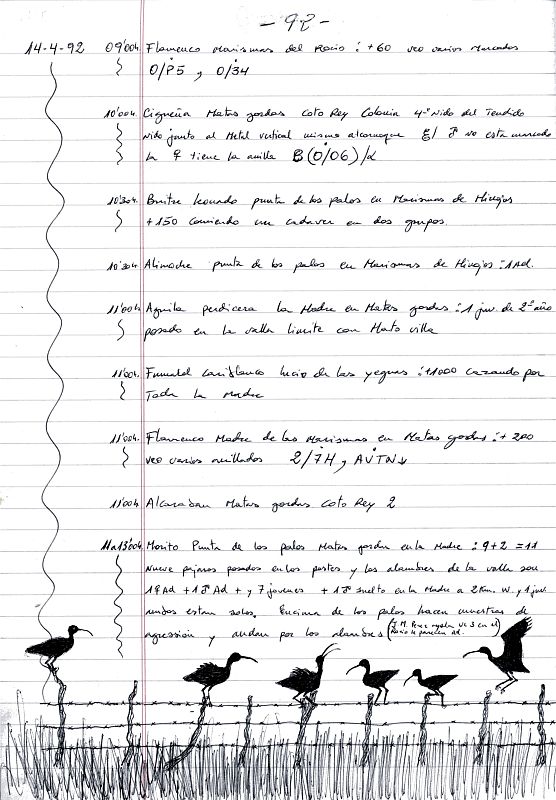 - 92 -
14-4-92 09'00h. Flamenco Marismas del Rocio : +60 veo varios Marcados
0/P5 , 0/34
10'00h. Cigueña Matas gordas Coto Rey Colonia 4º Nido del Tendido
Nido junto al Metal vertical mismo alcornoque El ♂ No esta marcado
La ♀ tiene la anilla B(0/06)/
10'30h. Buitre Leonado punta de los palos en Marismas de Hinojos
+150 Comiendo un cadaver en dos grupos.
10'30h. Alimoche punta de los palos en Marismas de Hinojos : 1Ad.
11'00h Aguila perdicera La Madre en Matas gordas : 1 juv. de 2º año
posado en la valla limite con Mato villa
11'00h. Fumarel Cariblanco lucio de las yeguas : +1000 cazando por
Toda La Madre
11'00h. Flamenco Madre de las Marismas en Matas gordas : + 200
veo varios anillados 2/7H , AVTN↓
11'00h Alcaravan Matas gordas Coto Rey 2
11 a 13'00h. Morito Punta de los palos Matas gordas en la Madre : 9+2 = 11
Nueve pajaros posados en los postes y los alambres de la valla son
1♀Ad +1♂Ad + y 7 jovenes + 1♂ suelto en la Madre a 2Km. W. y 1 juv.
estan solos. Encima de los palos hacen muestras de
agression y andan por los alambres (J.M. Perez vi 3 en el
Rocio le parecen ad.)